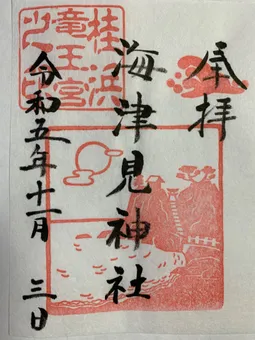 奉拝
海津見神社
令和五年十一月 三日
桂浜
竜王宮
之印